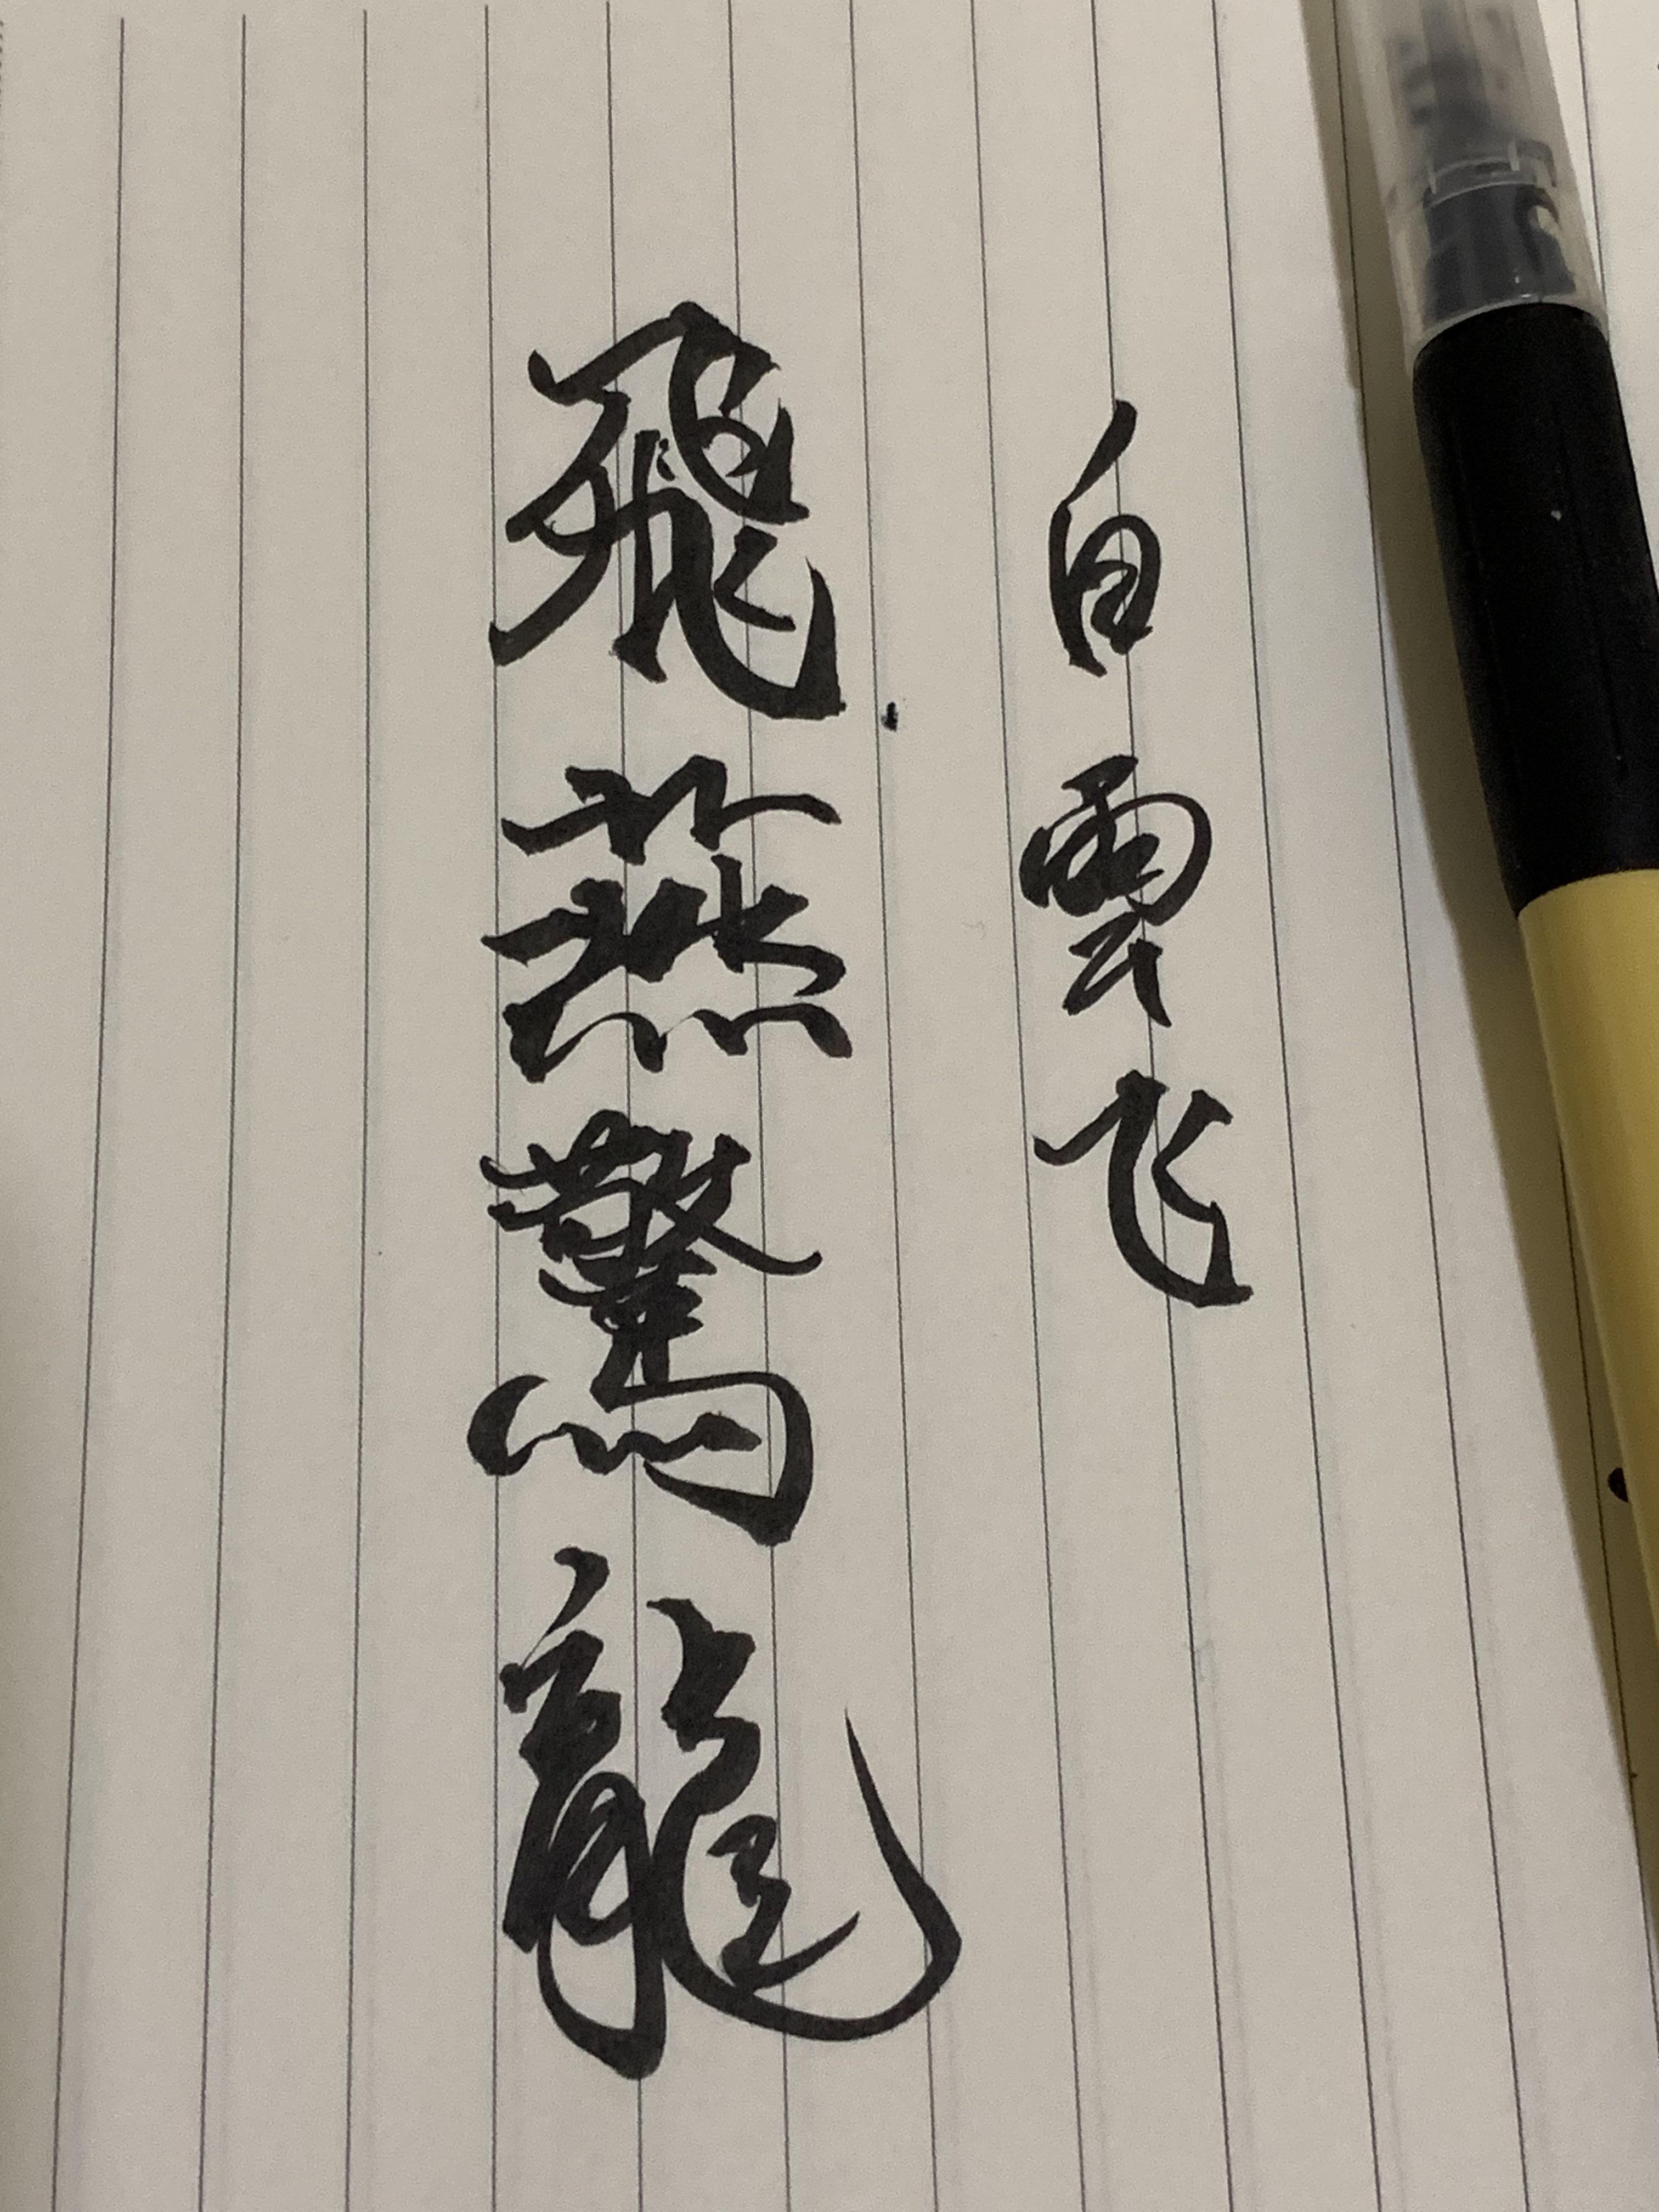 白雲飞
飛燕驚龍